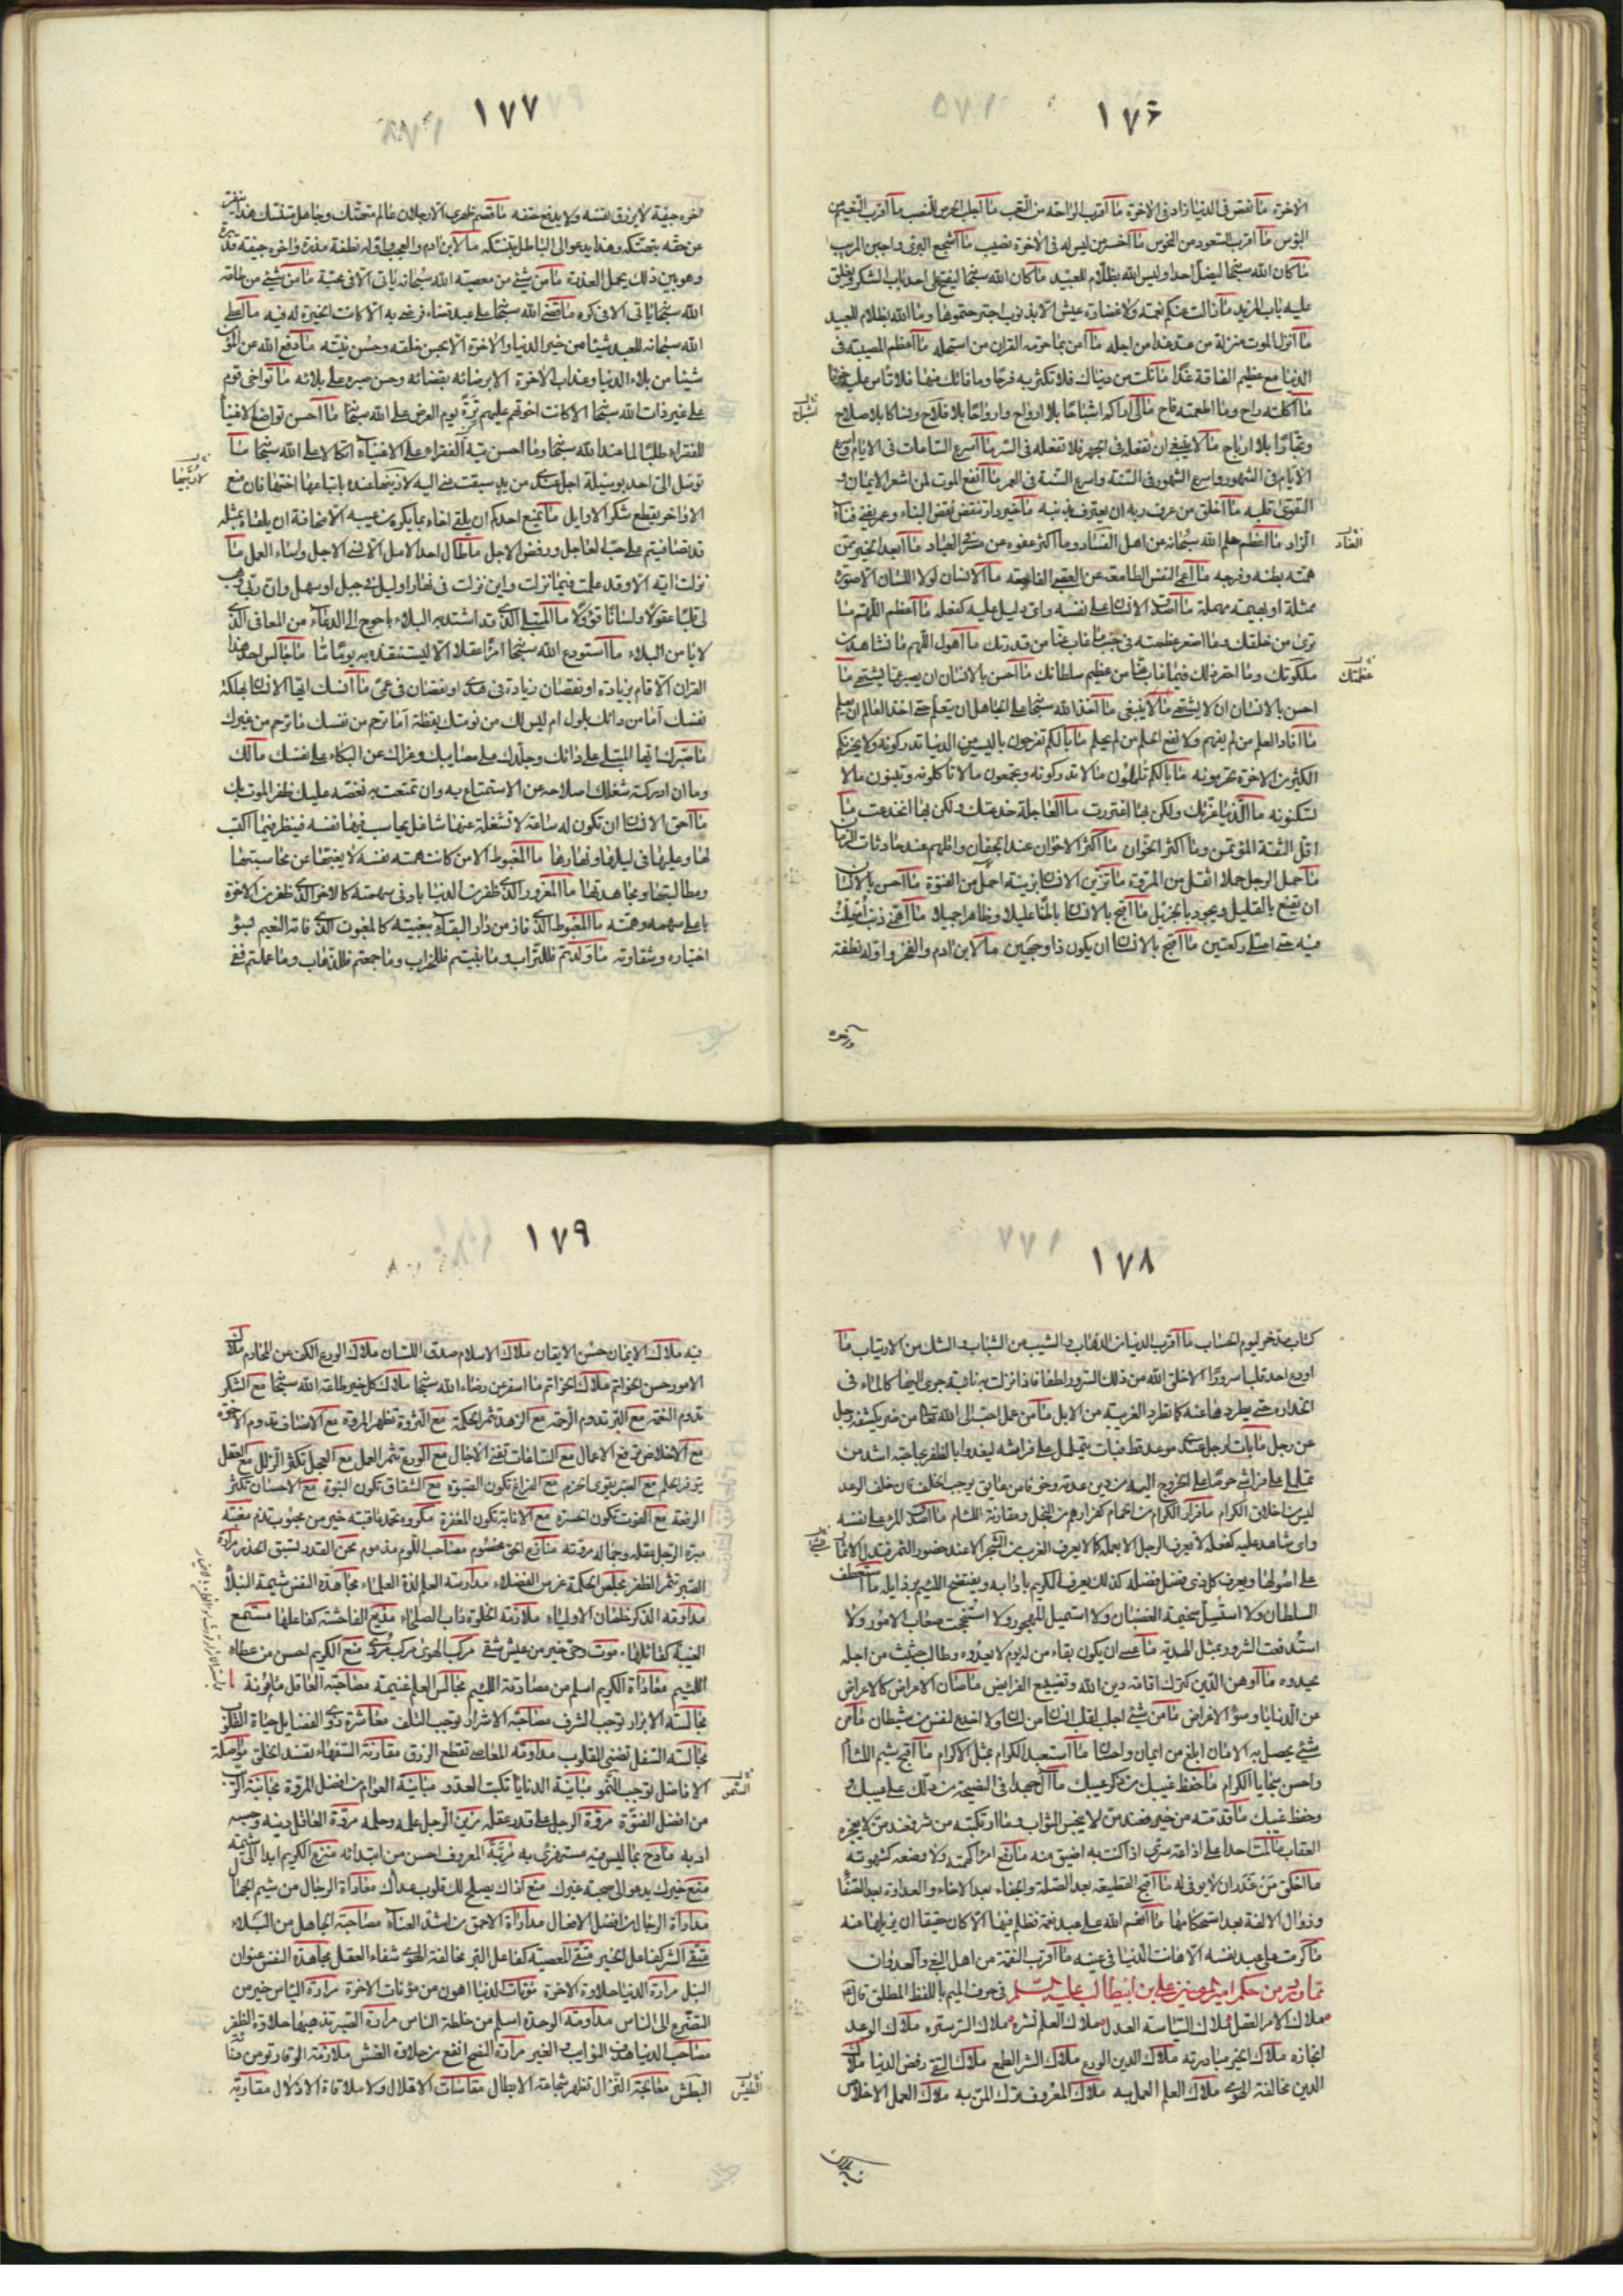 ١٧٦
الاخرة ما نقص فى الدنيا زاد فى الاخرة ما اقرب الراحة من التعب ما اجلب الحرص للنصب ما اقرب النعيم من
البؤس ما اقرب السعود من النحوس ما اخسر من ليس له فى الاخرة نصيب ما اشجع البرئ واجبن المريب
ما كان الله سبحانه ليضل احدا وليس الله بظلام للعبيد ما كان الله سبحانه ليفتح على احد باب الشكر ويغلق
عليه باب المزيد ما زالت عنكم نعمة ولا غضارة عيش الا بذنوب اجترحتموها وما الله بظلام للعبيد
ما انزل الموت منزلة من عد غدا من اجله ما امن بما حرمه القران من استحله ما اعظم المصيبة فى
الدنيا مع عظيم الفاقة غدا ما نلت من دنياك فلا تكثر به فرحا وما فاتك منها فلا تاس عليه حزنا
ما اكلته راح وما اطعمته فاح ما لى اراكم اشباحا بلا ارواح وارواحا بلا فلاح ونساكا بلا صلاح
وتجارا بلا ارباح ما لا ينبغى ان تفعله فى الجهر فلا تفعله فى السر ما اسرع الساعات فى الايام واسرع
الايام فى الشهور واسرع الشهور فى السنة واسرع السنة فى العمر ما انفع الموت لمن اشعر الايمان و
التقوى قلبه ما اخلق من عرف ربه ان يعترف بذنبه ما خير دار تنقض نقض البناء وعمر يفنى فناء
الزاد ما اعظم حلم الله سبحانه عن اهل الفساد وما اكثر عفوه عن مسرفى العباد ما ابعد الخير ممن
همته بطنه وفرجه ما اعمى النفس الطامعة عن العقبى الفاجعة ما الانسان لولا اللسان الا صورة
ممثلة او بهيمة مهملة ما اصدق الانسان على نفسه واى دليل عليه كفعله ما اعظم اللهم ما
نرى من خلقك وما اصغر عظمته فى جنب ما غاب عنا من قدرتك ما اهول اللهم ما نشاهده من
ملكوتك وما احقر ذلك فيما غاب عنا من عظيم سلطانك ما احسن بالانسان ان يصبر عما يشتهى ما
احسن بالانسان ان لا يشتهى ما لا ينبغى ما اخذ الله سبحانه على الجاهل ان يتعلم حتى اخذ العالم ان يعلم
ما افاد العلم من لم يفهم ولا نفع الحلم من لم يحلم ما بالكم تفرحون باليسير من الدنيا تدركونه ولا يحزنكم
الكثير من الاخرة تحرمونه ما بالكم تاملون ما لا تدركونه وتجمعون ما لا تاكلونه وتبنون ما لا
تسكنونه ما الدنيا غرتك ولكن بها اغتررت ما العاجلة خدعتك ولكن بها انخدعت ما
اقل الثقة المؤتمن وما اكثر الخوان ما اكثر الاخوان عند الجفان واقلهم عند حادثات الزمان
ما حمل الرجل حملا اثقل من المروة ما تزين الانسان بزينة اجمل من الفتوة ما احسن بالانسان
ان يقنع بالقليل ويجود بالجزيل ما اقبح بالانسان باطنا عليلا وظاهرا جميلا ما اهمنى ذنب امهلت
فيه حتى اصلى ركعتين ما اقبح بالانسان ان يكون ذا وجهين ما لابن ادم والفخر واوله نطفة
واخره
١٧٧
اخره جيفة لا يرزق نفسه ولا يدفع حتفه ما قصم ظهرى الا رجلان عالم متهتك وجاهل متنسك هذا ينفر
عن حقه بتهتكه وهذا يدعو الى الباطل بتنسكه ما لابن ادم والعجب واوله نطفة مذرة واخره جيفة قذرة
وهو بين ذلك يحمل العذرة ما من شئ من معصية الله سبحانه ياتى الا فى محبة ما من شئ من طاعة
الله سبحانه ياتى الا فى كره ما قضى الله سبحانه على عبد قضاء فرضى به الا كانت الخيرة له فيه ما اعطى
الله سبحانه العبد شيئا من خير الدنيا والاخرة الا بحسن خلقه وحسن نيته ما دفع الله عن المؤمن
شيئا من بلاء الدنيا وعذاب الاخرة الا برضائه بقضائه وحسن صبره على بلائه ما تواخى قوم
على غير ذات الله سبحانه الا كانت اخوتهم عليهم ترة يوم العرض على الله سبحانه ما احسن تواضع الاغنياء
للفقراء طلبا لما عند الله سبحانه وما احسن تيه الفقراء على الاغنياء اتكالا على الله سبحانه ما
توسل الى احد بوسيلة اجل عندى من يد سبقت منى اليه لاربيها عنده باتباعها اختها فان منع
الاواخر يقطع شكر الاوايل ما يمنع احدكم ان يلقى اخاه بما يكره من عيبه الا مخافة ان يلقاه بمثله
قد تصافيتم على حب العاجل ورفض الاجل ما طال احد الامل الا نسى الاجل واساء العمل ما
نزلت اية الا وقد علمت فيما نزلت واين نزلت فى نهار او ليل فى جبل او سهل وان ربى وهب
لى قلبا عقولا ولسانا قؤولا ما المبتلى الذى قد اشتد به البلاء باحوج الى الدعاء من المعافى الذى
لا يامن البلاء ما استودع الله سبحانه امرأ عقلا الا ليستنقذه به يوما ما ما جالس احد هذا
القران الا قام بزيادة او نقصان زيادة فى هدى او نقصان فى عمى ما انسك ايها الانسان بهلكة
نفسك اما من دائك بلول ام ليس لك من نومتك يقظة اما ترحم من نفسك ما ترحم من غيرك
ما صبرك ايها المبتلى على دائك وجلدك على مصايبك وعزاك عن البكاء على نفسك ما لك
وما ان ادركته شغلك اصلاحه عن الاستمتاع به وان تمتعت به نغصه عليك ظفر الموت بك
ما احق الانسان ان تكون له ساعة لا تشغله عنها شاغل يحاسب فيها نفسه فينظر فيما اكتسب
لها وعليها فى ليلها ونهارها ما المغبوط الا من كانت همته نفسه لا يغبها عن محاسبتها
ومطالبتها ومجاهدتها ما المغرور الذى ظفر من الدنيا بادنى سهمته كالاخر الذى ظفر من الاخرة
باعلى سهمه وهمته ما المغبوط الذى فاز من دار البقاء ببغيته كالمغبون الذى فاته النعيم بسوء
اختياره وشقاوته ما ولدتم فللتراب وما بنيتم فللخراب وما جمعتم فللذهاب وما عملتم ففى
١٧٨
كتاب مدخر ليوم الحساب ما اقرب الدنيا من الذهاب والشيب من الشباب والشك من الارتياب ما
اودع احد قلبا سرورا الا خلق الله من ذلك السرور لطفا فاذا نزلت به نائبة جرى اليها كالماء فى
انحداره حتى يطردها عنه كما تطرد الغريبة من الابل ما من عمل احب الى الله تعالى من ضر يكشفه رجل
عن رجل ما بات لرجل عندى موعد قط فبات يتململ على فراشه ليغدو بالظفر بحاجته اشد من
تململى على فراشى حرصا على الخروج اليه من دين عدته وخوفا من عايق يوجب الخلف فان خلف الوعد
ليس من اخلاق الكرام ما فرار الكرام من الحمام كفرارهم من البخل ومقارنة اللئام ما اصدق المرء على نفسه
واى شاهد عليه كفعله لا يعرف الرجل الا بعمله كما لا يعرف الغريب من الشجر الا عند حضور الثمر فتدل الاثمار
على اصولها ويعرف كل ذى فضل بفضله كذلك يعرف الكريم بادابه ويفتضح اللئيم برذايله ما استعطف
السلطان ولا استسل سخيمة الغضبان ولا استميل المهجور ولا استنجحت صعاب الامور ولا
استدفعت الشرور بمثل الهدية ما عسى ان يكون بقاء من له يوم لا يعدوه وطالب حثيث من اجله
يحدوه ما اوهن الدين كترك اقامة دين الله وتضييع الفرايض ما صان الاعراض كالاعراض
عن الدنايا وسوء الاغراض ما من شئ اجلب لقلب الانسان من لسان ولا اخدع لنفس من شيطان ما من
شئ يحصل به الامان ابلغ من ايمان واحسان ما استعبد الكرام بمثل الاكرام ما اقبح شيم اللئام
واحسن سجايا الكرام ما حفظ غيبك من ذكر عيبك ما الى جهدا فى النصيحة من دلك على عيبك و
وحفظ غيبك ما قدمته من خير فعند من لا يبخس الثواب وما ارتكبته من شر فعند من لا يعجزه
العقاب ما لمت احدا على اذاعة سرى اذا كنت به اضيق منه ما رفع امرأ كهمته ولا وضعه كشهوته
ما اخلق من غدر ان لا يوفى له ما اقبح القطيعة بعد الصلة والجفاء بعد الاخاء والعداوة بعد الصفا
وزوال الالفة بعد استحكامها ما انعم الله على عبد نعمة فظلم فيها الا كان حقيقا ان يزيلها عنه
ما كرمت على عبد نفسه الا هانت الدنيا فى عينه ما اقرب النقمة من اهل البغى والعدوان
مما ورد من حكم امير المؤمنين على بن ابيطالب عليه السلم فى حرف الميم باللفظ المطلق قال ع
ملاك الامر العقل ملاك السياسة العدل ملاك العلم نشره ملاك السر ستره ملاك الوعد
انجازه ملاك الخير مبادرته ملاك الدين الورع ملاك الشر الطمع ملاك التقى رفض الدنيا ملاك
الدين مخالفة الهوى ملاك العلم العمل به ملاك المعروف ترك المن به ملاك العمل الاخلاص
١٧٩
فيه ملاك الايمان حسن الايقان ملاك الاسلام صدق اللسان ملاك الورع الكف عن المحارم ملاك
الامور حسن الخواتم ملاك الخواتم ما اسفر عن رضاء الله سبحانه ملاك كل خير طاعة الله سبحانه مع الشكر
تدوم النعمة مع البر تدوم الرحمة مع الزهد تثمر الحكمة مع الثروة تظهر المروة مع الانصاف تدوم الاخوة
مع الاخلاص ترفع الاعمال مع الساعات تفنى الاجال مع الورع يثمر العمل مع العجل تكثر الزلل مع العقل
يتوفر الحلم مع الصبر يقوى الحزم مع الفراغ تكون الصبوة مع الشقاق تكون النبوة مع الاحسان تكثر
الرفعة مع الفوت تكون الحسرة مع الانابة تكون المغفرة مكروه تحمد عاقبته خير من محبوب تذم مغبته
ميزة الرجل عقله وجماله مروته منازع الحق مخصوم مصاحب اللوم مذموم محن القدر تسبق الحذر مرارة
الصبر تثمر الظفر مجلس الحكمة غرس الفضلاء مدارسة العلم لذة العلماء مجاهدة النفس شيمة النبلاء
مداومة الذكر خلصان الاولياء ملازمة الخلوة داب الصلحاء مذيع الفاحشة كفاعلها مستمع
الغيبة كقائلها موت وحى خير من عيش شقى مركب الهوى مركب مردى منع الكريم احسن من عطاء
اللئيم معاداة الكريم اسلم من مصادقة اللئيم مجالس العلم غنيمة مصاحبة العاقل مامونة
مجالسة الابرار توجب الشرف مصاحبة الاشرار توجب التلف معاشرة ذوى الفضايل حياة القلوب
مجالسة السفل تضنى القلوب مداومة المعاصى تقطع الرزق مقارنة السفهاء تفسد الخلق مواصلة
الافاضل توجب السمو مباينة الدنايا تكبت العدو مباينة العوام من افضل المروة مجانبة الريب
من افضل الفتوة مروة الرجل على قدر عقله زين الرجل علمه وحلمه مروة العاقل دينه وحسبه
ادبه مادح بما ليس فيه مستهزئ به مربة المعروف احسن من ابتدائه منزع الكريم ابدا الى شيم
منع خيرك يدعو الى صحبة غيرك منع اذاك يصلح لك قلوب عداك معاداة الرجال من شيم الجهال
مداراة الرجال من افضل الافضال مداراة الاحمق من اشد العناء مصاحبة الجاهل من البلاء
متقى الشر كفاعل الخير متقى المعصية كفاعل البر مخالفة الهوى شفاء العقل مجاهدة النفس عنوان
النبل مرارة الدنيا حلاوة الاخرة مؤنات الدنيا اهون من مؤنات الاخرة مرارة الياس خير من
التضرع الى الناس مداومة الوحدة اسلم من خلطة الناس مرارة الصبر تذهبها حلاوة الظفر
مصاحب الدنيا هدف النوايب والغير مرارة النصح انفع من حلاوة الغش ملازمة الوقار تؤمن دناءة
البطش معالجة النزال تظهر شجاعة الابطال مقاسات الاقلال ولا ملاقاة الاذلال مقاربة